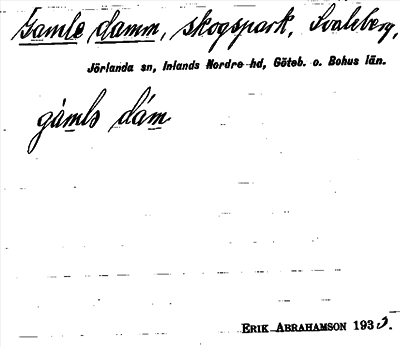 Gamle damm, skogspark, Svaleberg,
Jörlanda sn, Inlands Nordre hd, Göteb. o. Bohus län.
gàmls dám
ERIK ABRAHAMSON 193